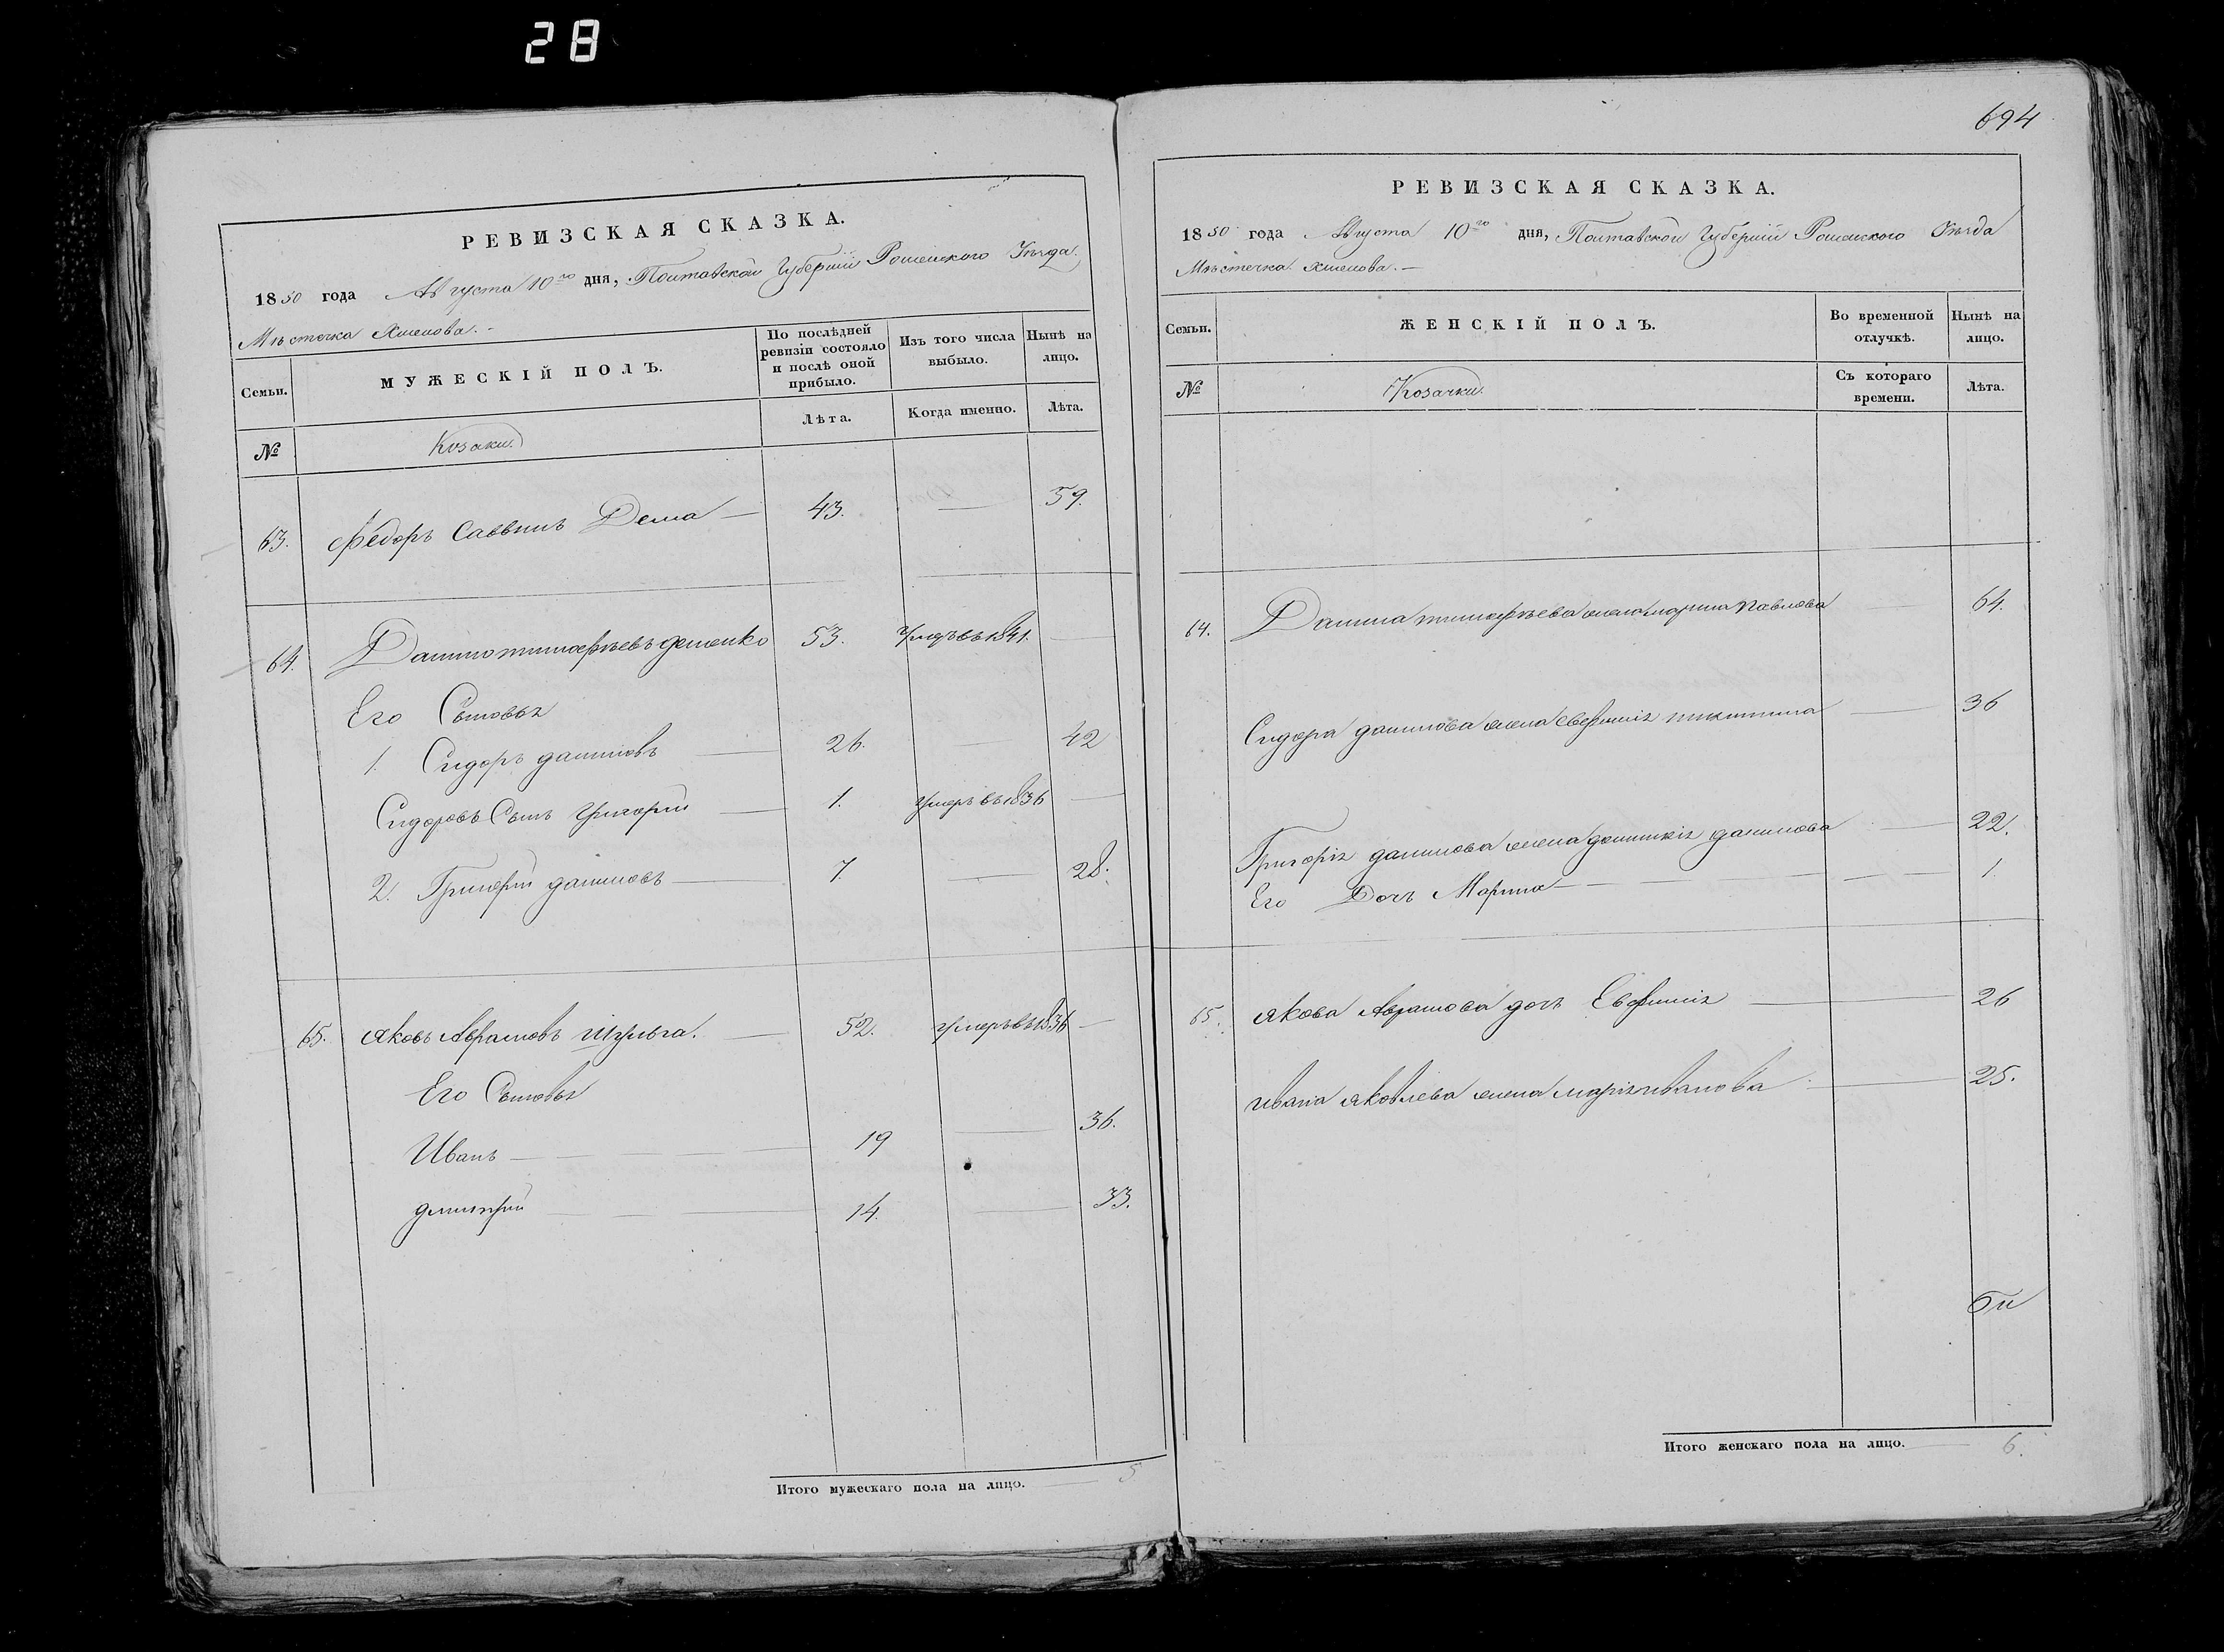 28
РЕВИЗСКАЯ СКАЗКА.
1850 года Августа 10го дня, Полтавской Губернiи Роменского Уѣзда
Мѣстечка Хмелова.
Семьи.
МУЖЕСКIЙ ПОЛЪ.
По послѣдней ревизiи состояло и послѣ оной прибыло.
Изъ того числа выбыло.
Нынѣ на лицо.
№
Козаки.
Лѣта.
Когда именно.
Лѣта.
63. Федоръ Саввинъ Дема 43. — 59.
64. Данило тимофѣевъ деменко 53. Умеръ въ 1841. —
Его Сыновья
1. Сидоръ даниловъ 26. — 42
Сидоровъ Сынъ Григорiй 1. умеръ въ 1836 —
2. Григорiй даниловъ 7 — 28.
65. Яковъ Аврамовъ Шульга. 52. умеръ въ 1836 —
Его Сыновья
Иванъ 19 — 36.
дмитрiй 14. — 33.
Итого мужескаго пола на лицо. 5
694
РЕВИЗСКАЯ СКАЗКА.
1850 года Августа 10го дня, Полтавской Губернiи Роменского Уѣзда
Мѣстечка Хмелова. —
Семьи.
ЖЕНСКIЙ ПОЛЪ.
Во временной отлучкѣ.
Нынѣ на лицо.
№
Козачки.
Съ котораго времени.
Лѣта.
64. Данила тимофѣева жена марина Павлова 64.
Сидора данилова жена Евфимiя никитина 36
Григорiя данилова жена домникiя данилова 22.
Его Дочь Марина 1.
65. Якова Аврамова дочь Евфимiя 26
ивана Яковлева жена марiя иванова 25.
Итого женскаго пола на лицо. 6.